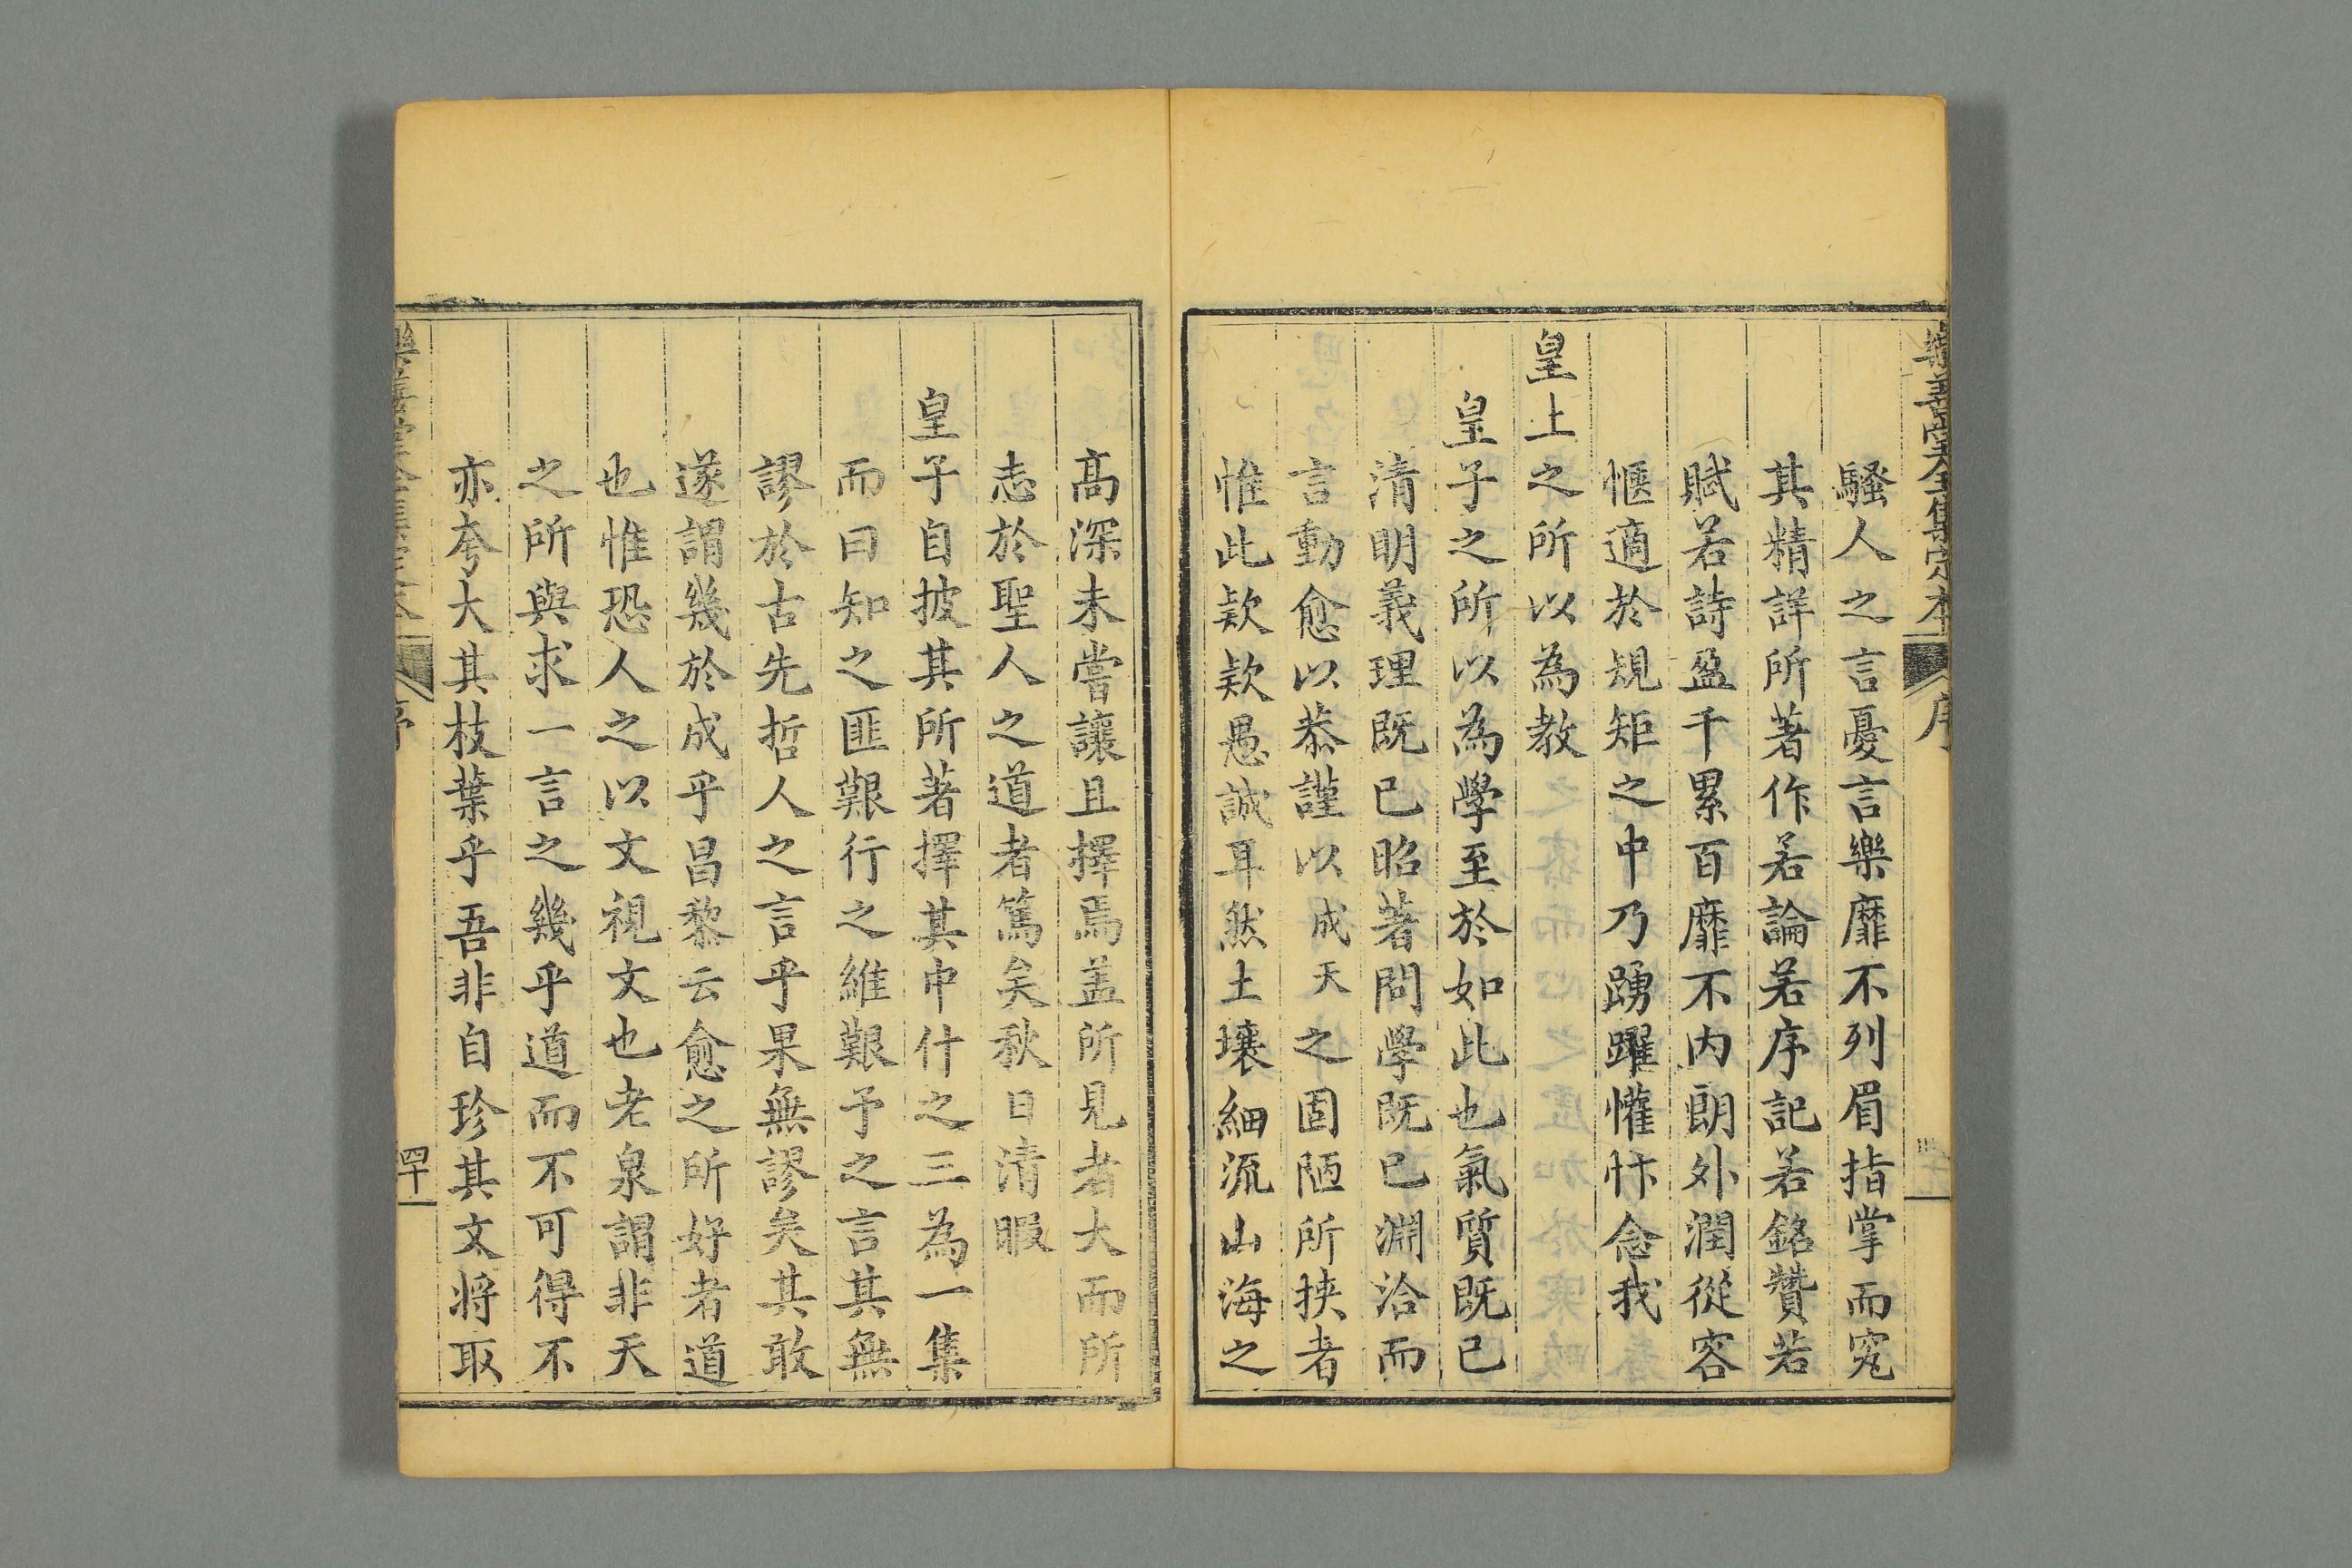 樂善堂全集定本 序
騷人之言憂言樂靡不列眉指掌而究
其精詳所著作若論若序記若銘贊若
賦若詩盈千累百靡不内朗外潤從容
愜適於規矩之中乃踴躍懽忭念我
皇上之所以為教
皇子之所以為學至於如此也氣質既已
清明義理既已昭著問學既已淵洽而
言動愈以恭謹以成天之固陋所挟者
惟此款款愚誠耳然土壤細流山海之
高深未嘗讓且擇焉盖所見者大而所
志於聖人之道者篤矣秋日清暇
皇子自披其所著擇其中什之三為一集
而曰知之匪艱行之維艱予之言其無
謬於古先哲人之言乎果無謬矣其敢
遂謂幾於成乎昌黎云愈之所好者道
也惟恐人之以文視文也老泉謂非天
之所與求一言之幾乎道而不可得不
亦夸大其枝葉乎吾非自珍其文将取
四十一